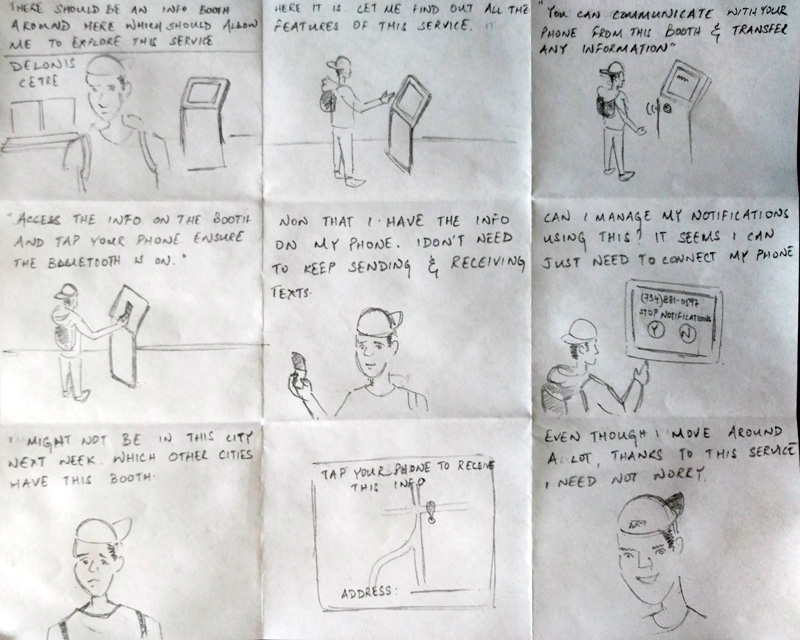 THERE SHOULD BE AN INFO BOOTH
AROUND HERE WHICH SHOULD ALLOW
ME TO EXPLORE THIS SERVICE
DELONIS
CETRE
HERE IT IS. LET ME FIND OUT ALL THE
FEATURES OF THIS SERVICE.
"YOU CAN COMMUNICATE WITH YOUR
PHONE FROM THIS BOOTH & TRANSFER
ANY INFORMATION"
"ACCESS THE INFO ON THE BOOTH
AND TAP YOUR PHONE. ENSURE
THE BLUETOOTH IS ON."
NOW THAT I HAVE THE INFO
ON MY PHONE. I DON'T NEED
TO KEEP SENDING & RECEIVING
TEXTS.
CAN I MANAGE MY NOTIFICATIONS
USING THIS? IT SEEMS I CAN
JUST NEED TO CONNECT MY PHONE
(734)881-0597
STOP NOTIFICATIONS
Y N
I MIGHT NOT BE IN THIS CITY
NEXT WEEK. WHICH OTHER CITIES
HAVE THIS BOOTH.
TAP YOUR PHONE TO RECEIVE
THIS INFO
ADDRESS:
EVEN THOUGH I MOVE AROUND
A LOT, THANKS TO THIS SERVICE
I NEED NOT WORRY.